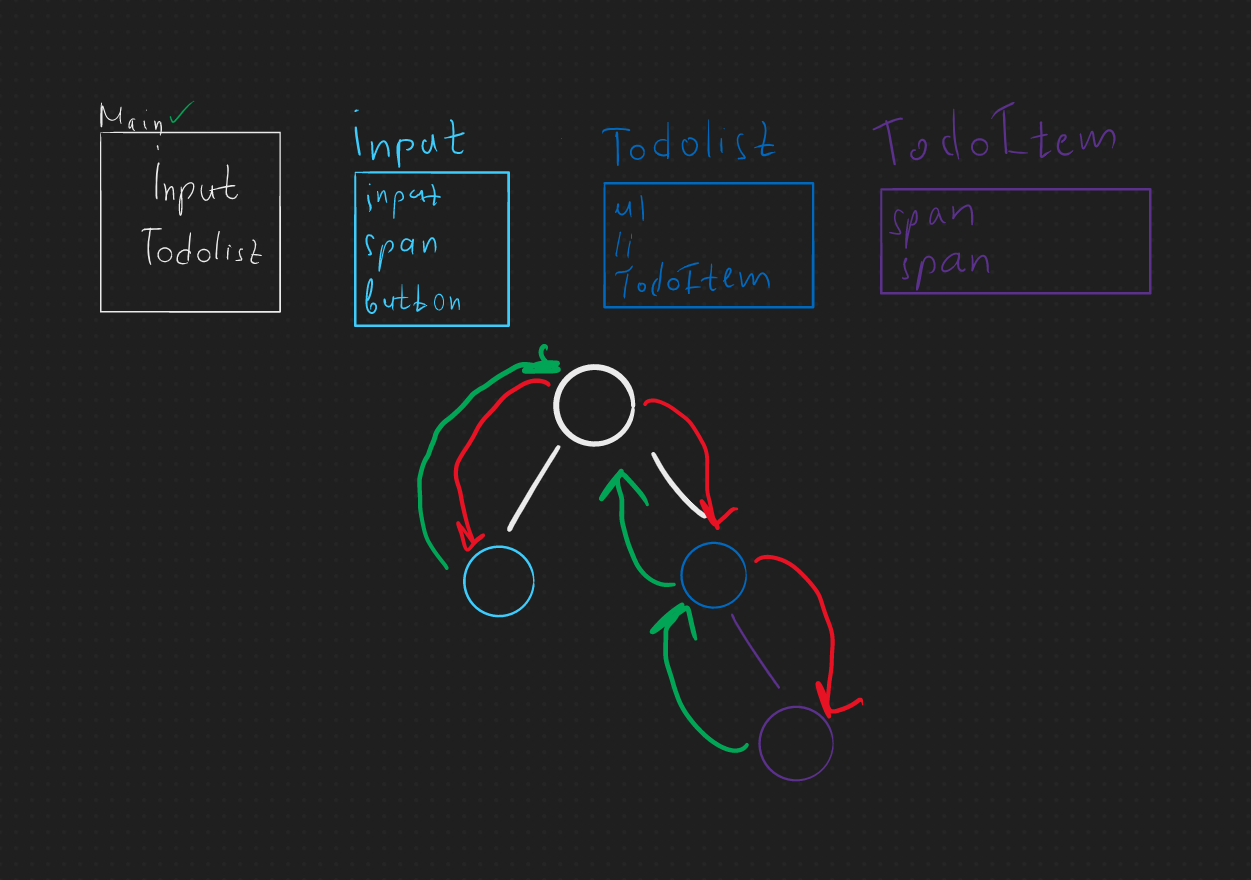 Main
Input
Todolist
Input
input
span
button
Todolist
ul
li
TodoItem
TodoItem
span
span